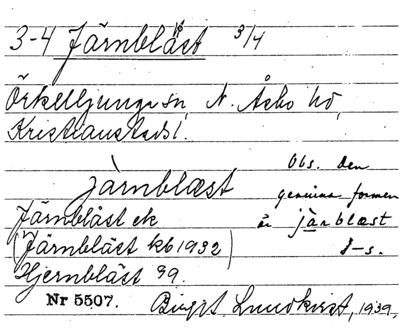 3-4 Järnbläst 3/4
Örkelljunga sn, N. Åsbo hd,
Kristianstads l.
Obs. den
jàrnblæst genuina formen
Järnbläst ek är jàrblæst
(Järnbläst kb 1932) J-s.
Hjernbläst 39.
Nr 5507. Birgit Lundkvist, 1939.